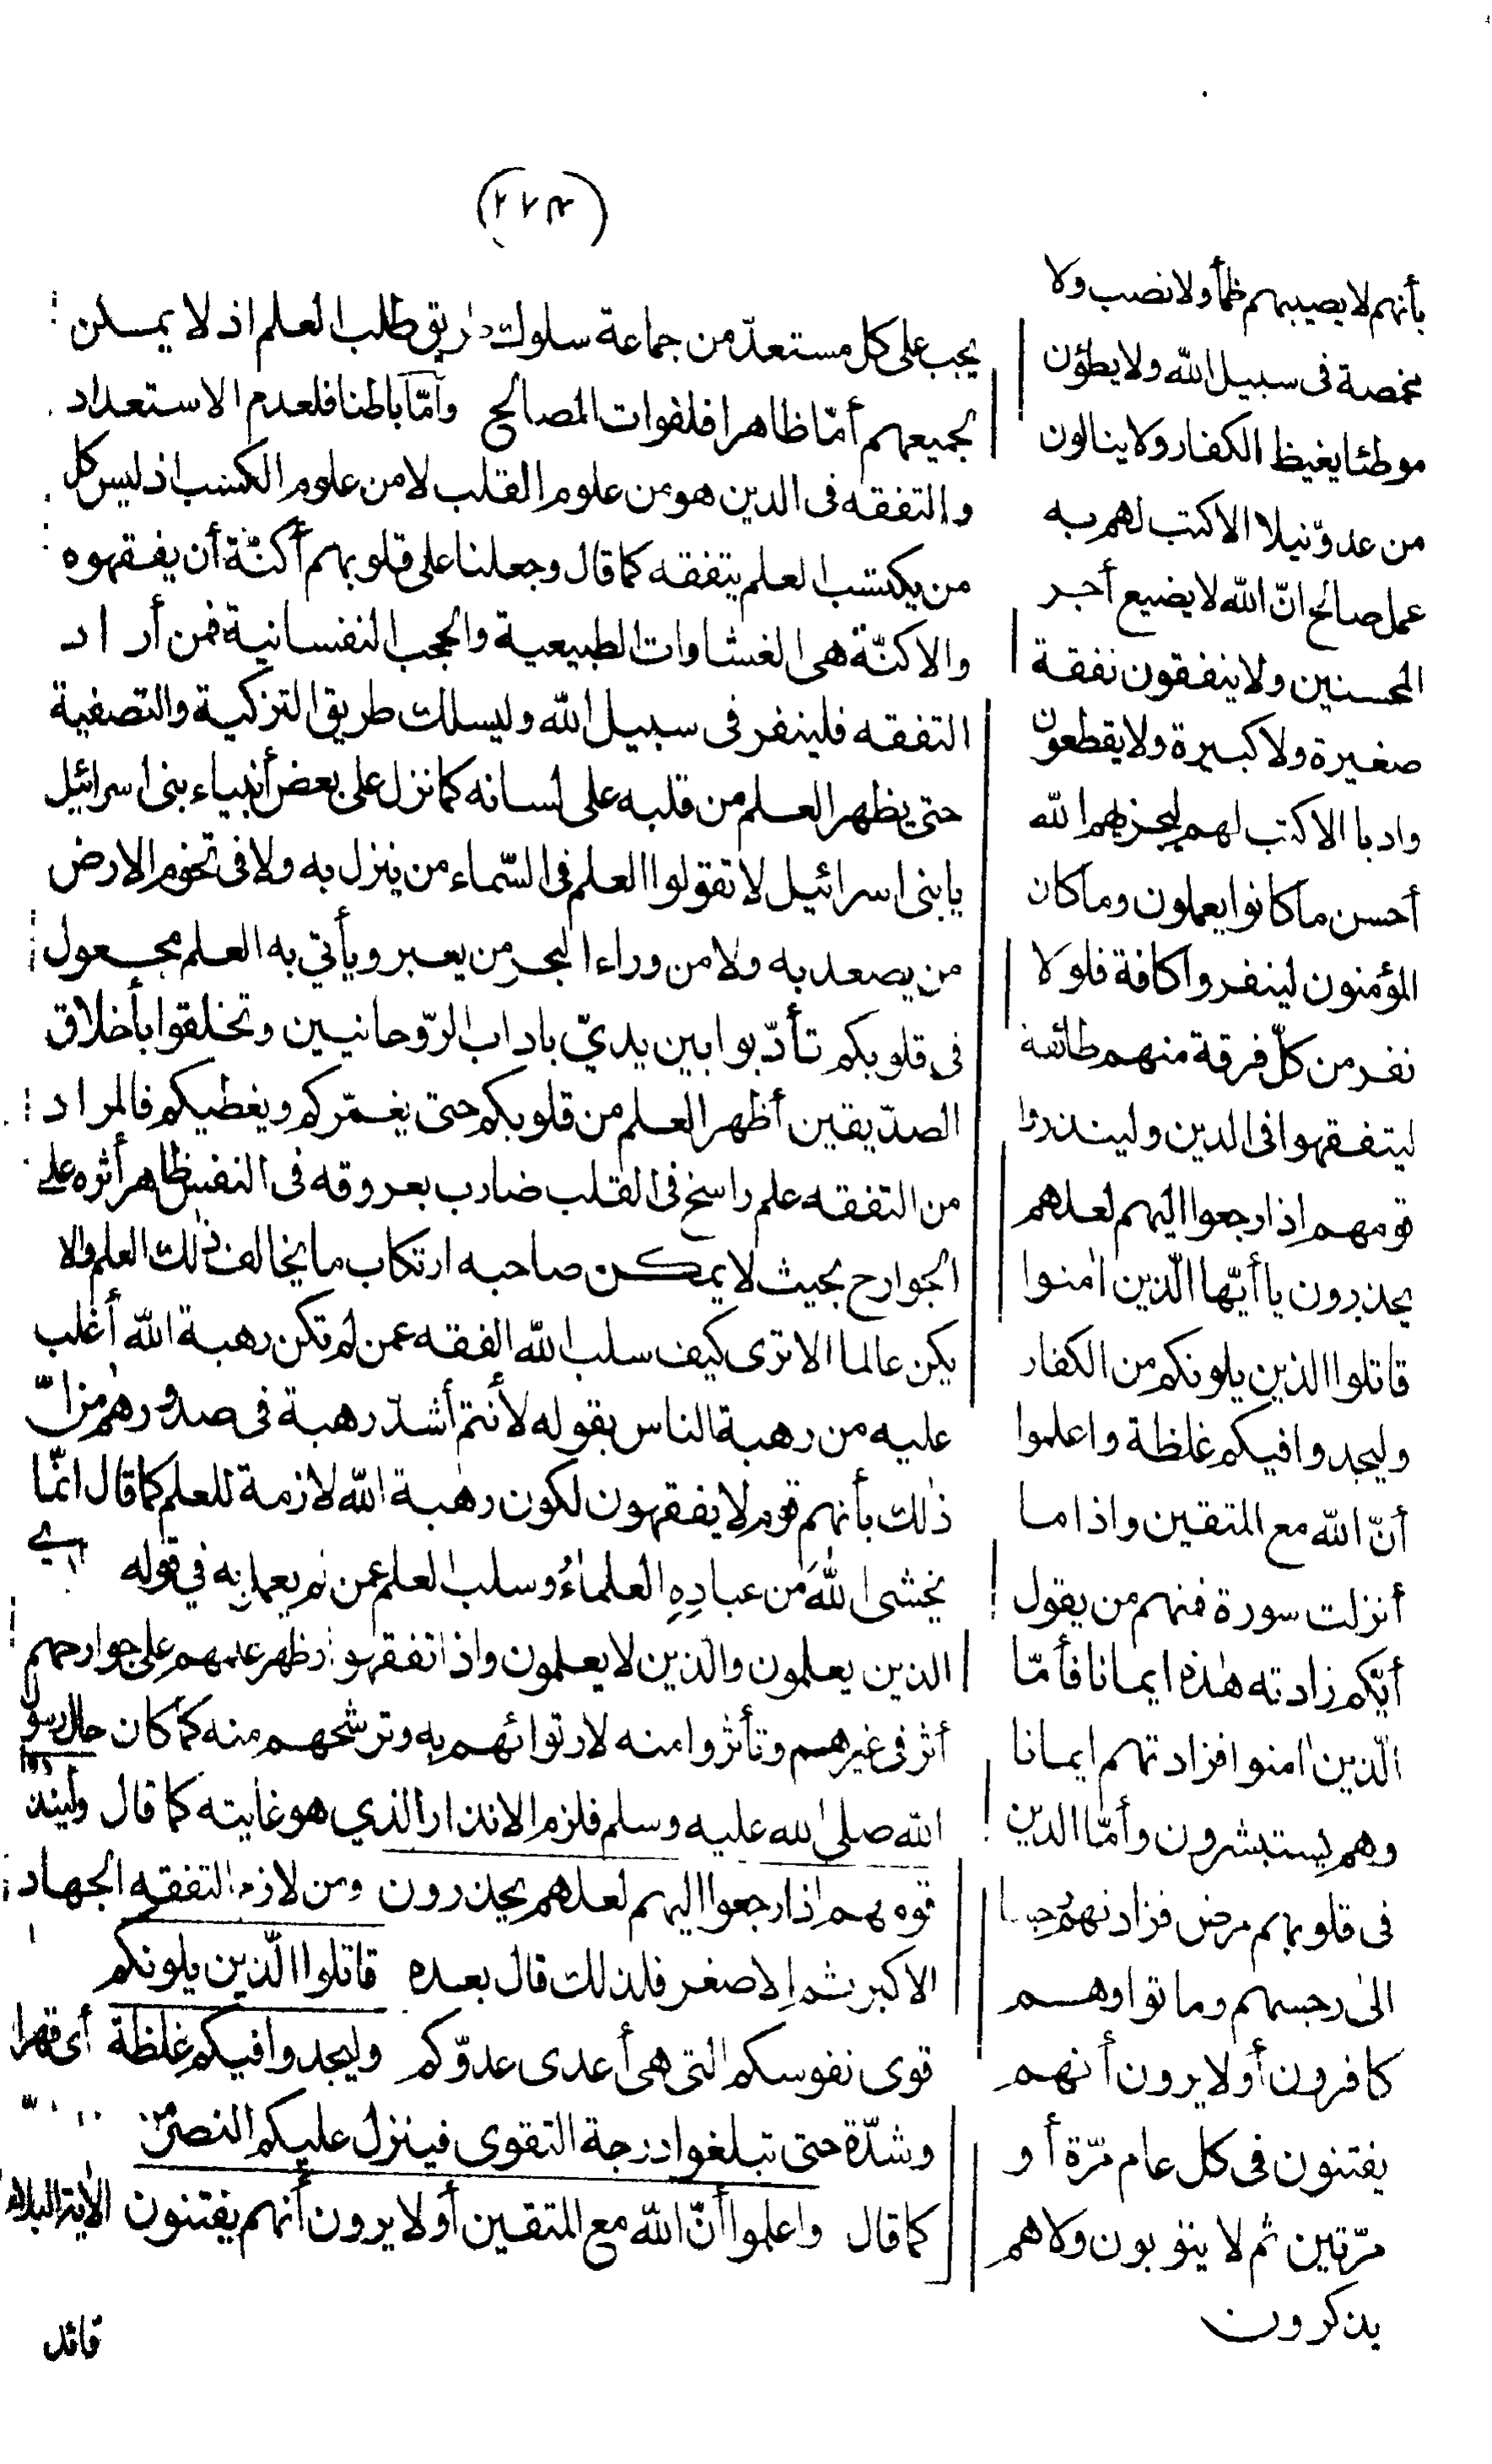 (٢٧٣)
بأنهم لا يصيبهم ظمأ ولا نصب ولا
مخمصة فى سبيل الله ولا يطؤن
موطئا يغيظ الكفار ولا ينالون
من عدوّ نيلا الا كتب لهم به
عمل صالح انّ الله لا يضيع أجر
المحسنين ولا ينفقون نفقة
صغيرة ولا كبيرة ولا يقطعون
واديا الا كتب لهم ليجزيهم الله
أحسن ما كانوا يعملون وما كان
المؤمنون لينفروا كافة فلولا
نفر من كلّ فرقة منهم طائفة
ليتفقهوا فى الدين ولينذروا
قومهم إذا رجعوا اليهم لعلهم
يحذرون يا أيّها الّذين اٰمنوا
قاتلوا الذين يلونكم من الكفار
وليجدوا فيكم غلظة واعلموا
أنّ الله مع المتقين واذا ما
أنزلت سورة فمنهم من يقول
أيّكم زادته هٰذه ايمانا فأمّا
الّذين اٰمنوا فزادتهم ايمانا
وهم يستبشرون وأمّا الذين
فى قلوبهم مرض فزادتهم رجسا
الىٰ رجسهم وماتوا وهم
كافرون أولا يرون أنهم
يفتنون فى كل عام مرّة أو
مرّتين ثم لا يتوبون ولا هم
يذكرون
يجب على كل مستعدّ من جماعة سلوك طريق طلب العلم اذ لا يمكن
لجميعهم أمّا ظاهرا فلفوات المصالح وأمّا باطنا فلعدم الاستعداد
والتفقه فى الدين هو من علوم القلب لا من علوم الكسب اذ ليس كل
من يكتسب العلم يتفقه كما قال وجعلنا على قلوبهم أكنّة أن يفقهوه
والاكنّة هى الغشاوات الطبيعية والحجب النفسانية فمن أراد
التفقه فلينفر فى سبيل الله وليسلك طريق التزكية والتصفية
حتى يظهر العلم من قلبه على لسانه كما نزل على بعض أنبياء بنى اسرائيل
يا بنى اسرائيل لا تقولوا العلم فى السّماء من ينزل به ولا فى تخوم الارض
من يصعد به ولا من وراء البحر من يعبر ويأتي به العلم مجعول
فى قلوبكم تأدّبوا بين يديّ باداب الرّوحانيين وتخلقوا بأخلاق
الصدّيقين أظهر العلم من قلوبكم حتى يغمّركم ويغطيكم فالمراد
من التفقه علم راسخ فى القلب ضارب بعروقه فى النفس ظاهر أثره على
الجوارح بحيث لا يمكن صاحبه ارتكاب ما يخالف ذٰلك العلم والا لم
يكن عالما الا ترى كيف سلب الله الفقه عمن لم تكن رهبة الله أغلب
عليه من رهبة الناس بقوله لأنتم أشدّ رهبة فى صدورهم من الله
ذٰلك بأنهم قوم لا يفقهون لكون رهبة الله لازمة للعلم كما قال انّما
يخشى اللهَ من عبادِهِ العلماءُ وسلب العلم عمن لم يعمل به في قوله هل يستوى
الذين يعلمون والذين لا يعلمون واذا تفقهوا وظهر علمهم على جوارحهم
أثر فى غيرهم وتأثروا منه لارتوائهم به وترشحهم منه كما كان حال رسول
الله صلى الله عليه وسلم فلزم الانذار الذي هو غايته كما قال ولينذروا
قومهم اذا رجعوا اليهم لعلهم يحذرون ومن لازم التفقه الجهاد
الاكبر ثم الاصغر فلذلك قال بعده قاتلوا الّذين يلونكم
قوى نفوسكم التى هى أعدى عدوّكم وليجدوا فيكم غلظة أى قهرا
وشدّة حتى تبلغوا درجة التقوى فينزل عليكم النصر من
كما قال واعلموا أنّ الله مع المتقين أولا يرون أنهم يفتنون الاٰية البلاء
قائد